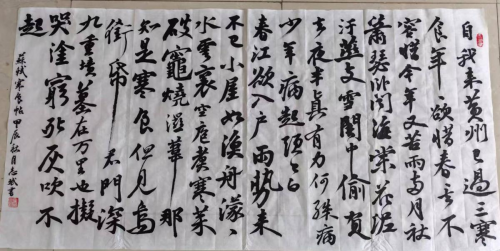 自我来黄州已过三寒
食年年欲惜春春去不
容惜今年又苦雨两月秋
萧瑟卧闻海棠花泥
污燕支雪闇中偷负
去夜半真有力何殊病
少年病起头已白
春江欲入户雨势来
不已小屋如渔舟濛濛
水云里空庖煮寒菜
破灶烧湿苇那
知是寒食但见乌
衔帋君门深
九重坟墓在万里也拟
哭涂穷死灰吹不
起
苏轼寒食帖甲辰秋月志斌书